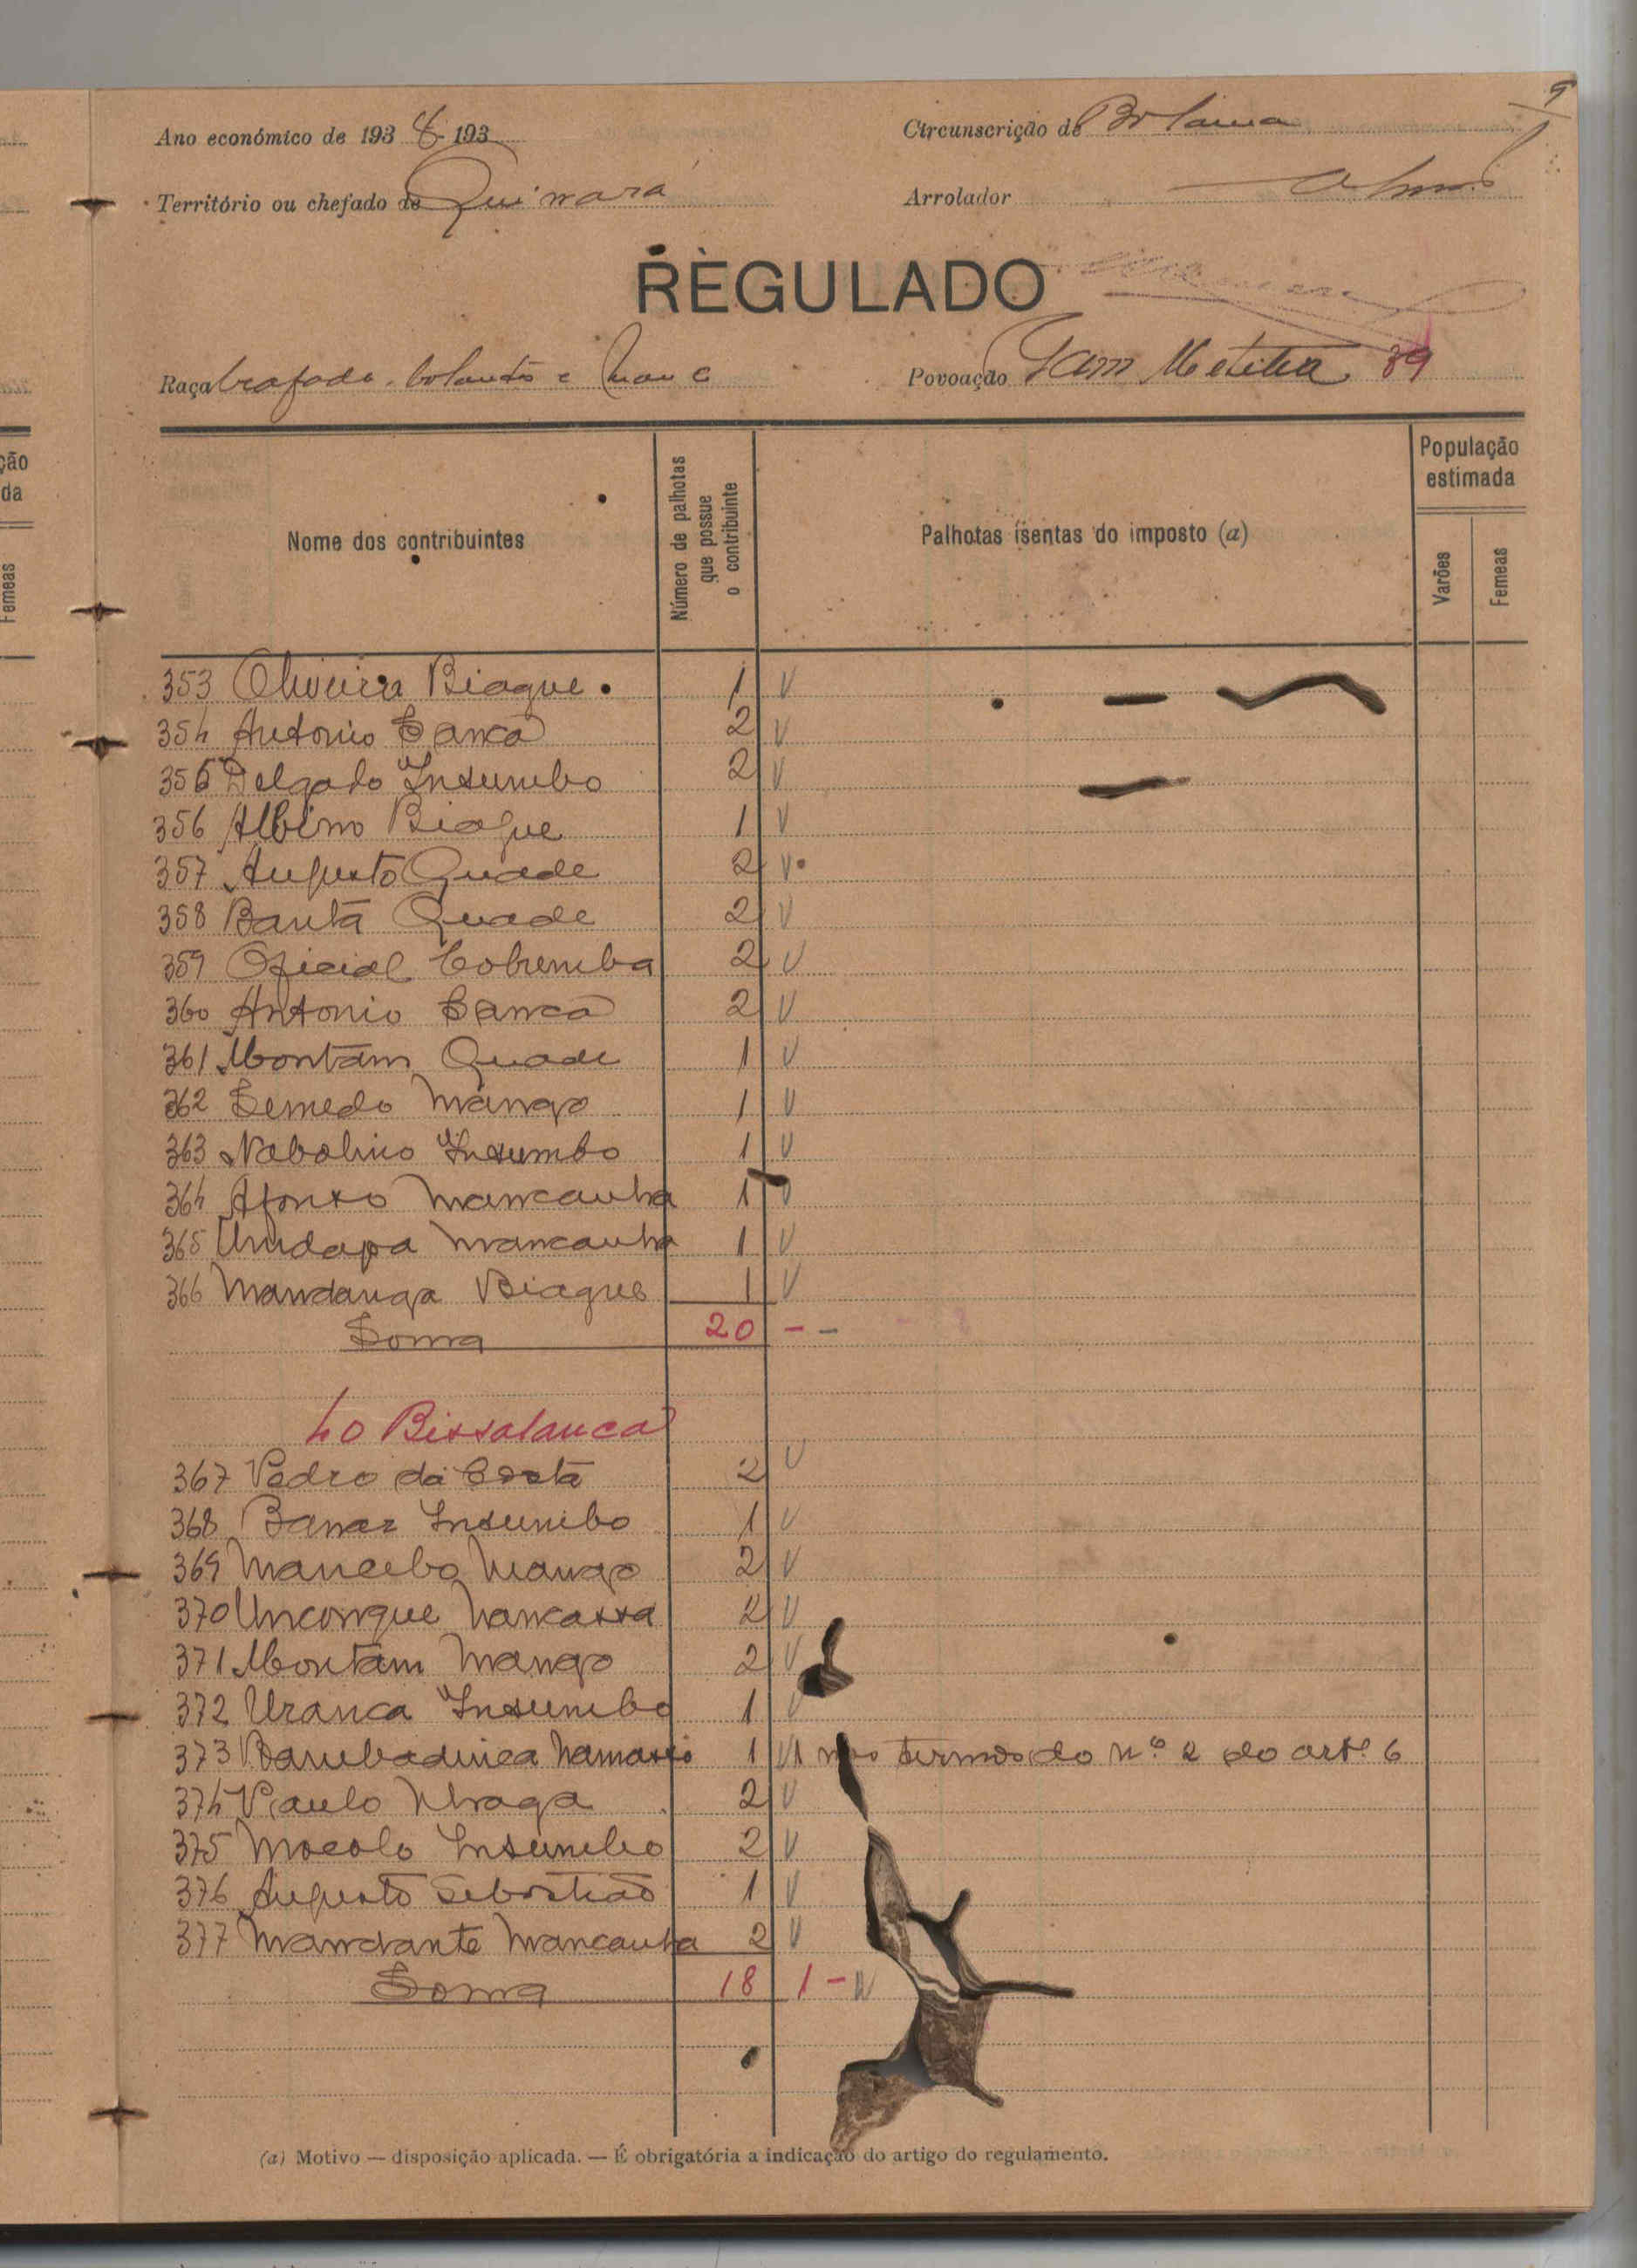 9
Ano económico de 1938-193
Circunscrição de Bolama
Território ou chefado de Quinara
Arrolador
REGULADO
Raça beafada, balanta e
Povoação Gam Metitia 39
População estimada
Nome dos contribuintes
Número de palhotas que possue o contribuinte
Palhotas isentas do imposto (a)
Varões
Femeas
353 Oliveira Biague 1 V
354 Antonio Sanca 2 V
355 Delgado Insumbo 2 V
356 Albino Biague 1 V
357 Augusto Quade 2 V
358 Bantã Quade 2 V
359 Oficial Cobumba 2 V
360 Antonio Sanca 2 V
361 Montam Quade 1 V
362 Semedo Mango 1 V
363 Nabolino Insumbo 1 V
364 Afonso Mancanha 1 V
365 Undapa Mancanha 1 V
366 Mandanga Biague 1 V
Soma 20 - -
40 Bissalanca
367 Pedro da Costa 2 V
368 Banar Insumbo 1 V
369 Mancebo Mango 2 V
370 Unconque Nancassa 2 V
371 Montam Mango 2 V
372 Uranca Insumbo 1 V
373 Bambadinca Namassó 1 V 1 nos termos do nº 2 do artº 6
374 Paulo Nhaga 2 V
375 Mocolo Insumbo 2 V
376 Augusto Sebastião 1 V
377 Mandante Mancanha 2 V
Soma 18 1 -
(a) Motivo — disposição aplicada. — É obrigatória a indicação do artigo do regulamento.
ção
da
Femeas